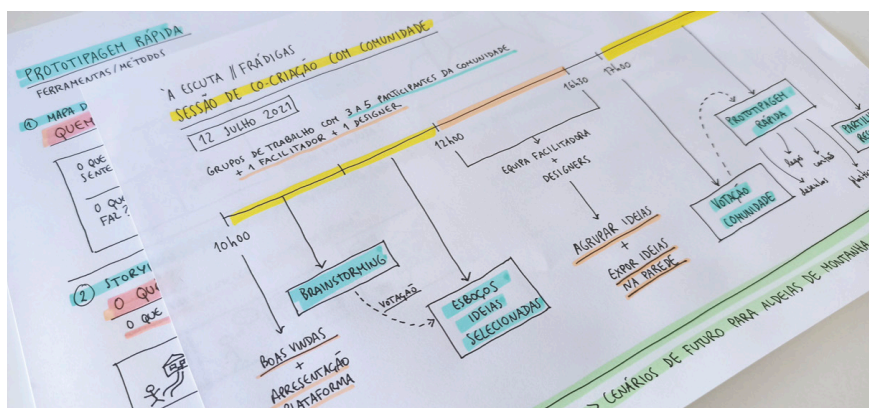 PROTOTIPAGEM RÁPIDA
FERRAMENTAS/MÉTODOS
① MAPA D
QUEM
O QUE
SENTE
O QU
FAZ?
② STORY
O QU
O QUE
À ESCUTA // FRÁDIGAS
SESSÃO DE CO-CRIAÇÃO COM COMUNIDADE
12 JULHO 2021
GRUPOS DE TRABALHO COM 3 A 5 PARTICIPANTES DA COMUNIDADE
+ 1 FACILITADOR + 1 DESIGNER
10h00
12h00
16h30
17h00
BOAS VINDAS
+
APRESENTAÇÃO
PLATAFORMA
BRAINSTORMING
VOTAÇÃO
ESBOÇOS
IDEIAS
SELECIONADAS
EQUIPA FACILITADORA
+
DESIGNERS
AGRUPAR IDEIAS
+
EXPOR IDEIAS
NA PAREDE
VOTAÇÃO
COMUNIDADE
PROTOTIPAGEM
RÁPIDA
legos
desenhos
cartão
PARTIL
RES
> CENÁRIOS DE FUTURO PARA ALDEIAS DE MONTANHA